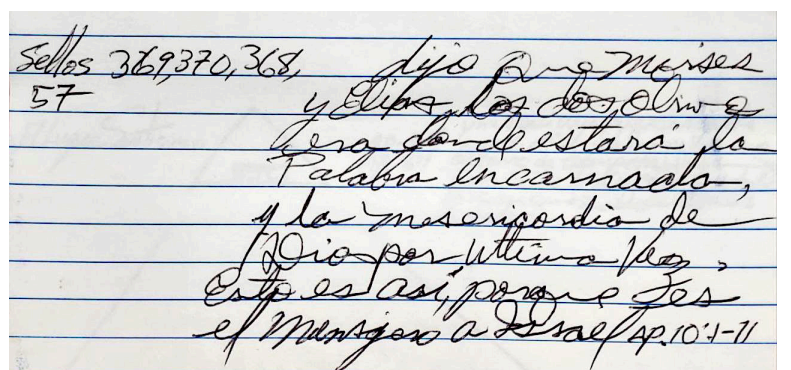 Sellos 369,370,368, dijo que Moises
57 y Elias, los dos Olivos
era donde estará la
Palabra encarnada,
y la misericordia de
Dios por ultima vez.
Esto es así, porque es
el Mensajero a Israel Ap. 10:1-11